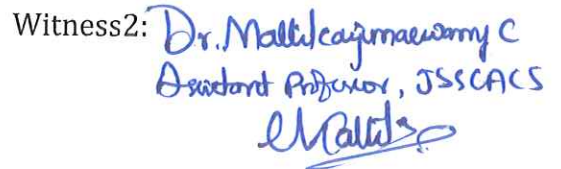 Witness2: Dr. Mallikarjunaswamy C
Assistant Professor, JSSCACS